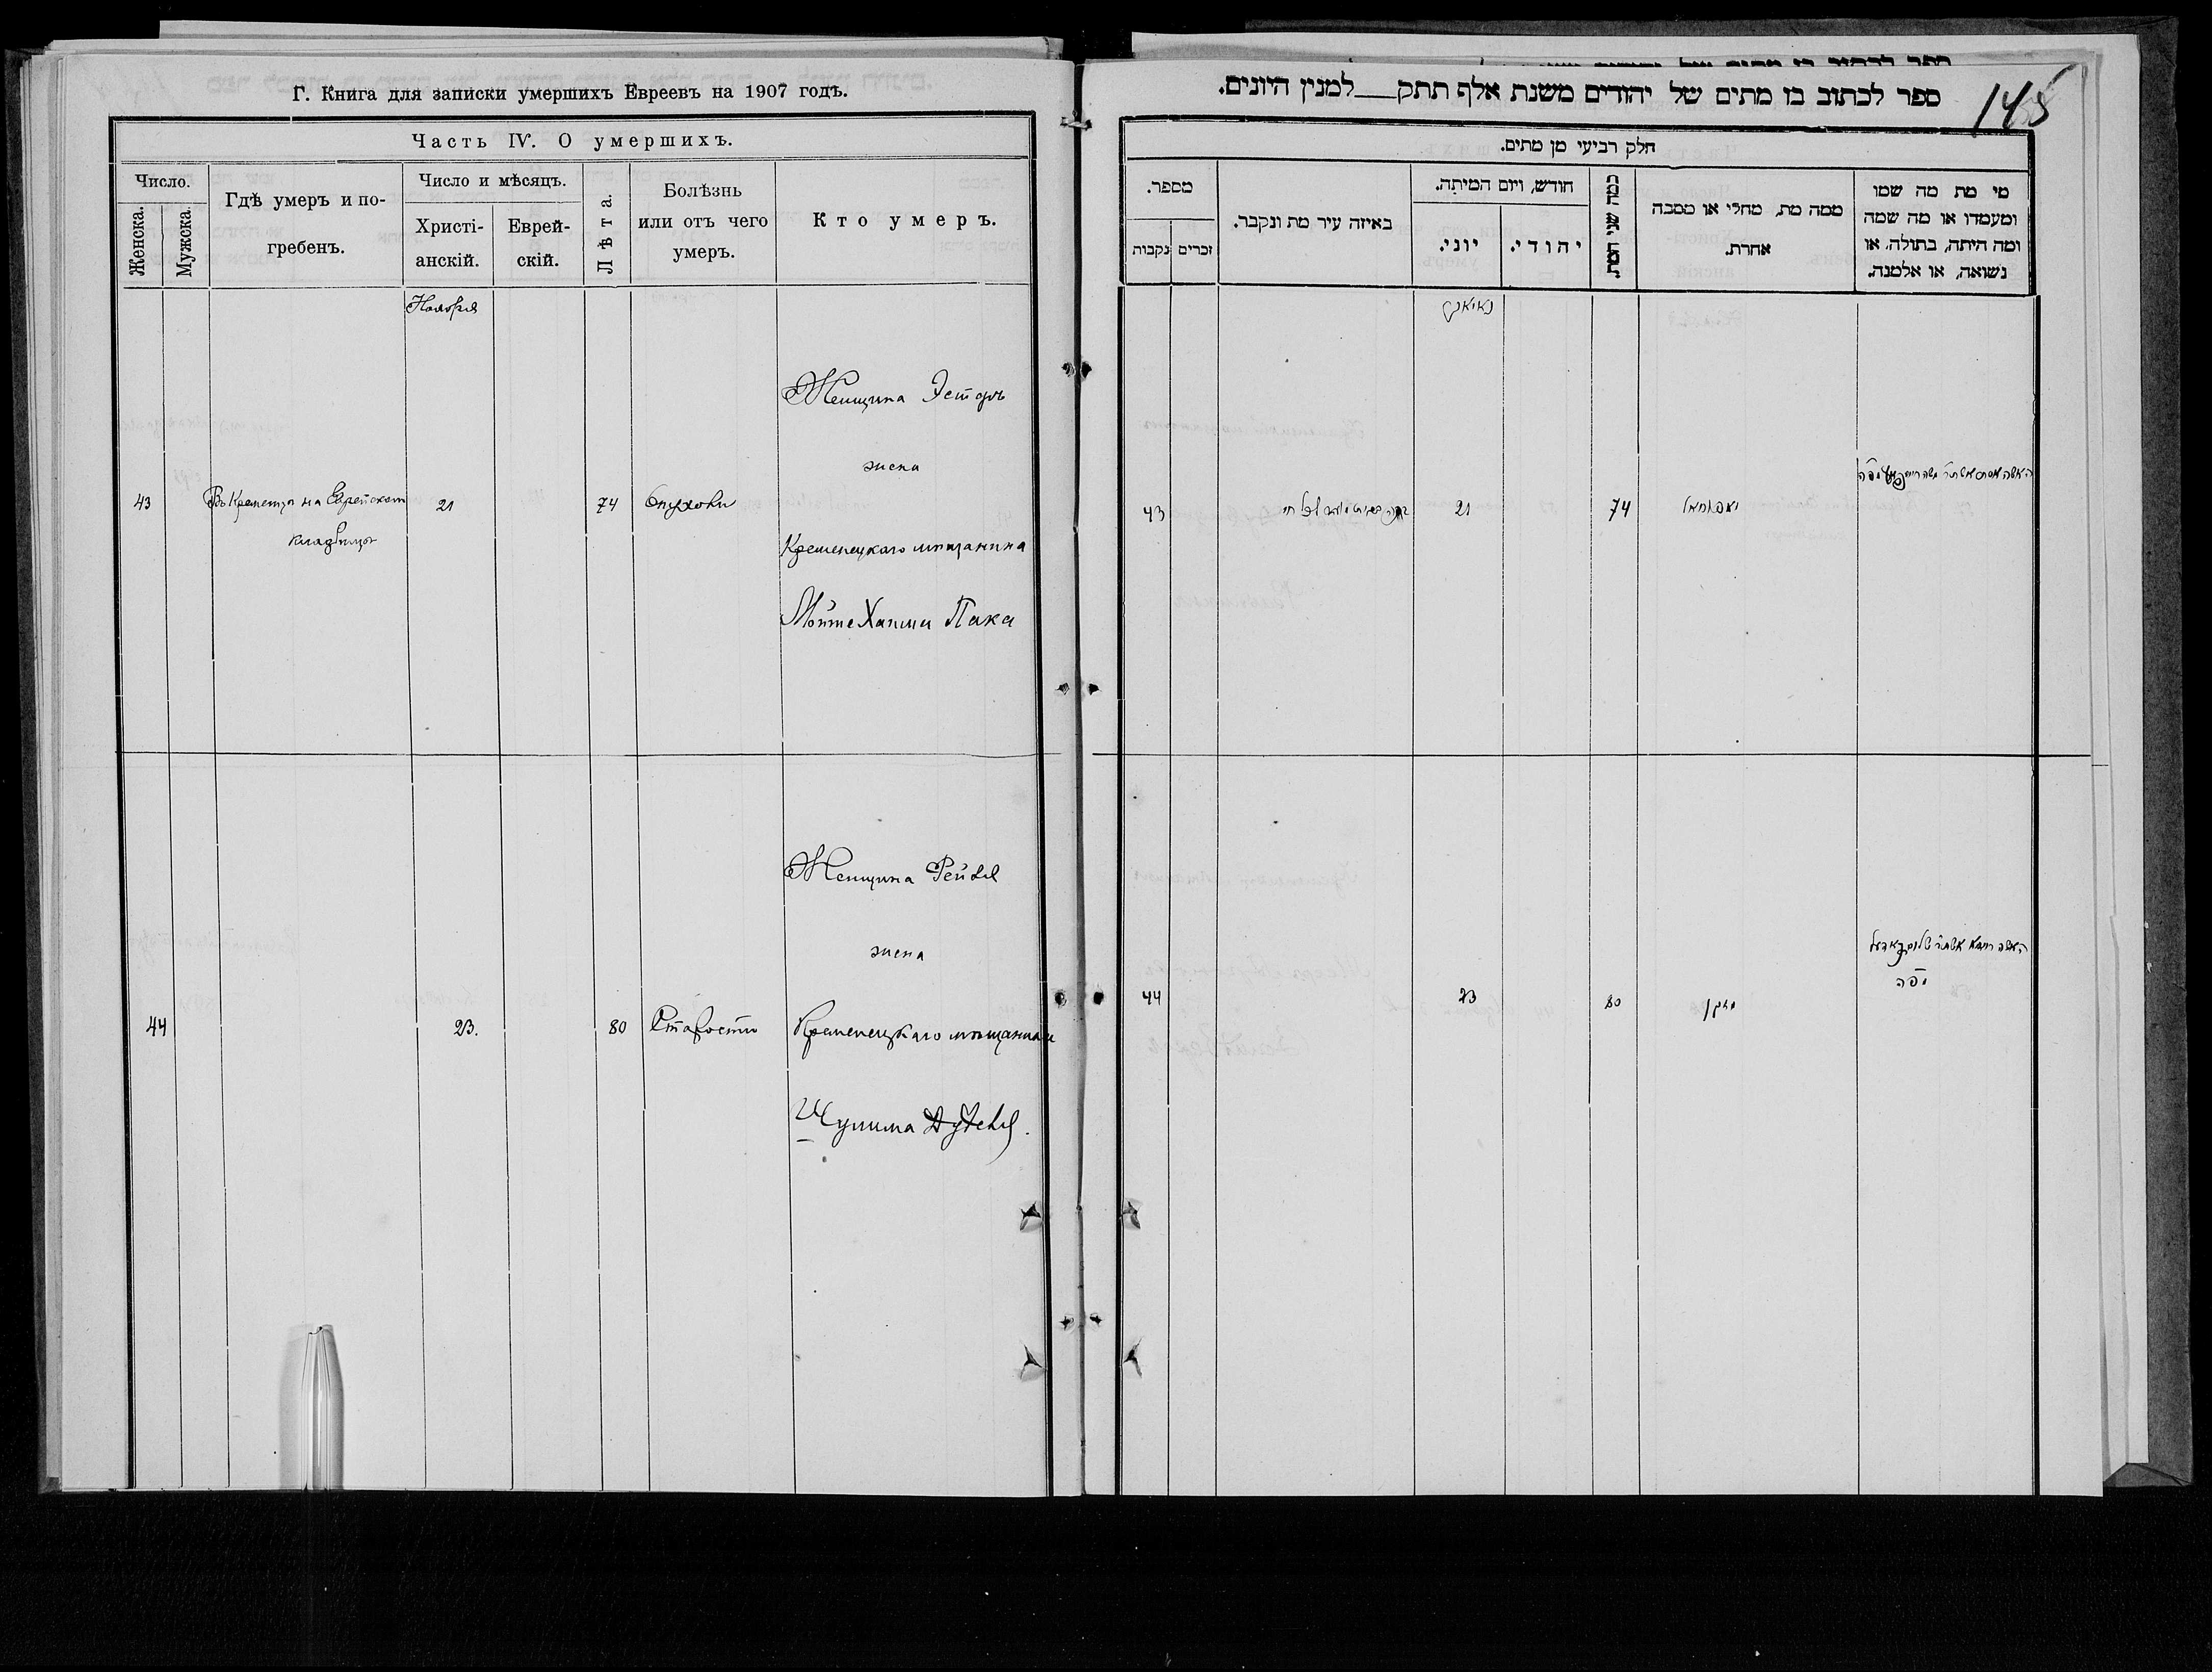 Г. Книга для записки умершихъ Евреевъ на 1907 годъ.
Часть IV. О умершихъ.
Число.
Женска.
Мужска.
Гдѣ умеръ и по-
гребенъ.
Число и мѣсяцъ.
Христі-
анскій.
Еврей-
скій.
Лѣта.
Болѣзнь
или отъ чего
умеръ.
Кто умеръ.
Ноября
43
Въ Кременцѣ на Еврейском
кладбищѣ
21
74
Опухоли
Женщина Эстеръ
жена
Кременецкаго мѣщанина
Мойше Хаима Пака
44
23.
80
Старости
Женщина Рейзя
жена
Кременецкаго мѣщанина
Шулима
ספר לכתוב בו מתים של יהודים משנת אלף תתק למנין היונים.
145
חלק רביעי מן מתים.
מספר.
נקבות
זכרים
באיזה עיר מת ונקבר.
חודש, ויום המיתה.
יוני.
יהודי.
כמה שני המת.
ממה מת, מחלי או מסבה
אחרת.
מי מת מה שמו
ומעמדו או מה שמה
ומה היתה, בתולה, או
נשואה, או אלמנה.
43
21
74
44
23
80